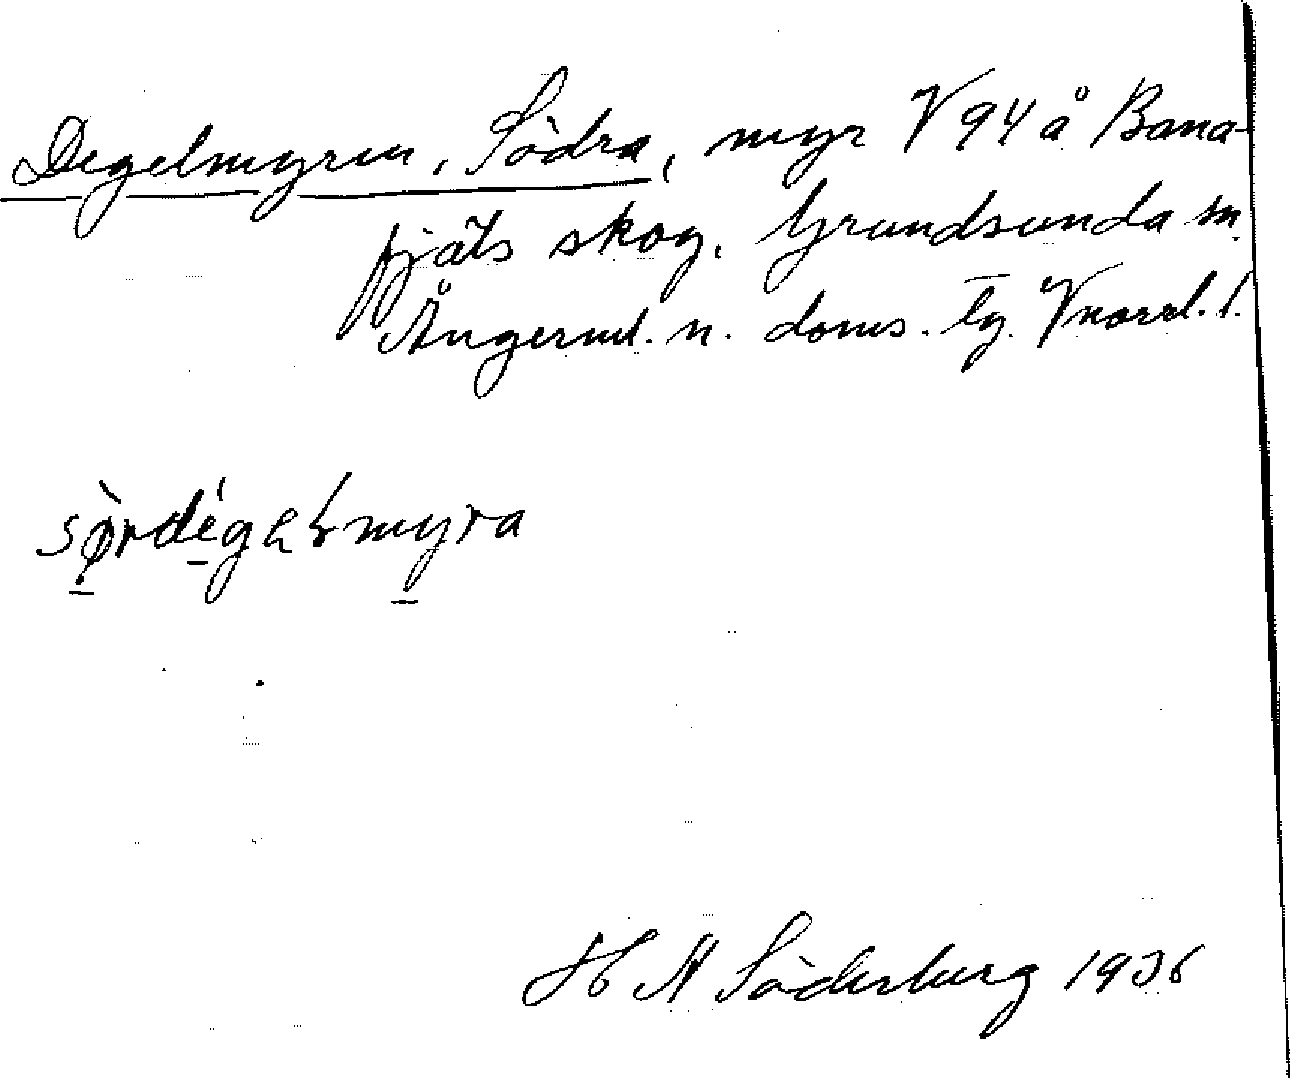 Degelmyren, Södra, myr V 94 å Bana-
fjäls skog. Grundsunda sn.
Ångerml. n. doms. tg. Vnorrl. l.
sørdegelmyra
H A Söderberg 1936